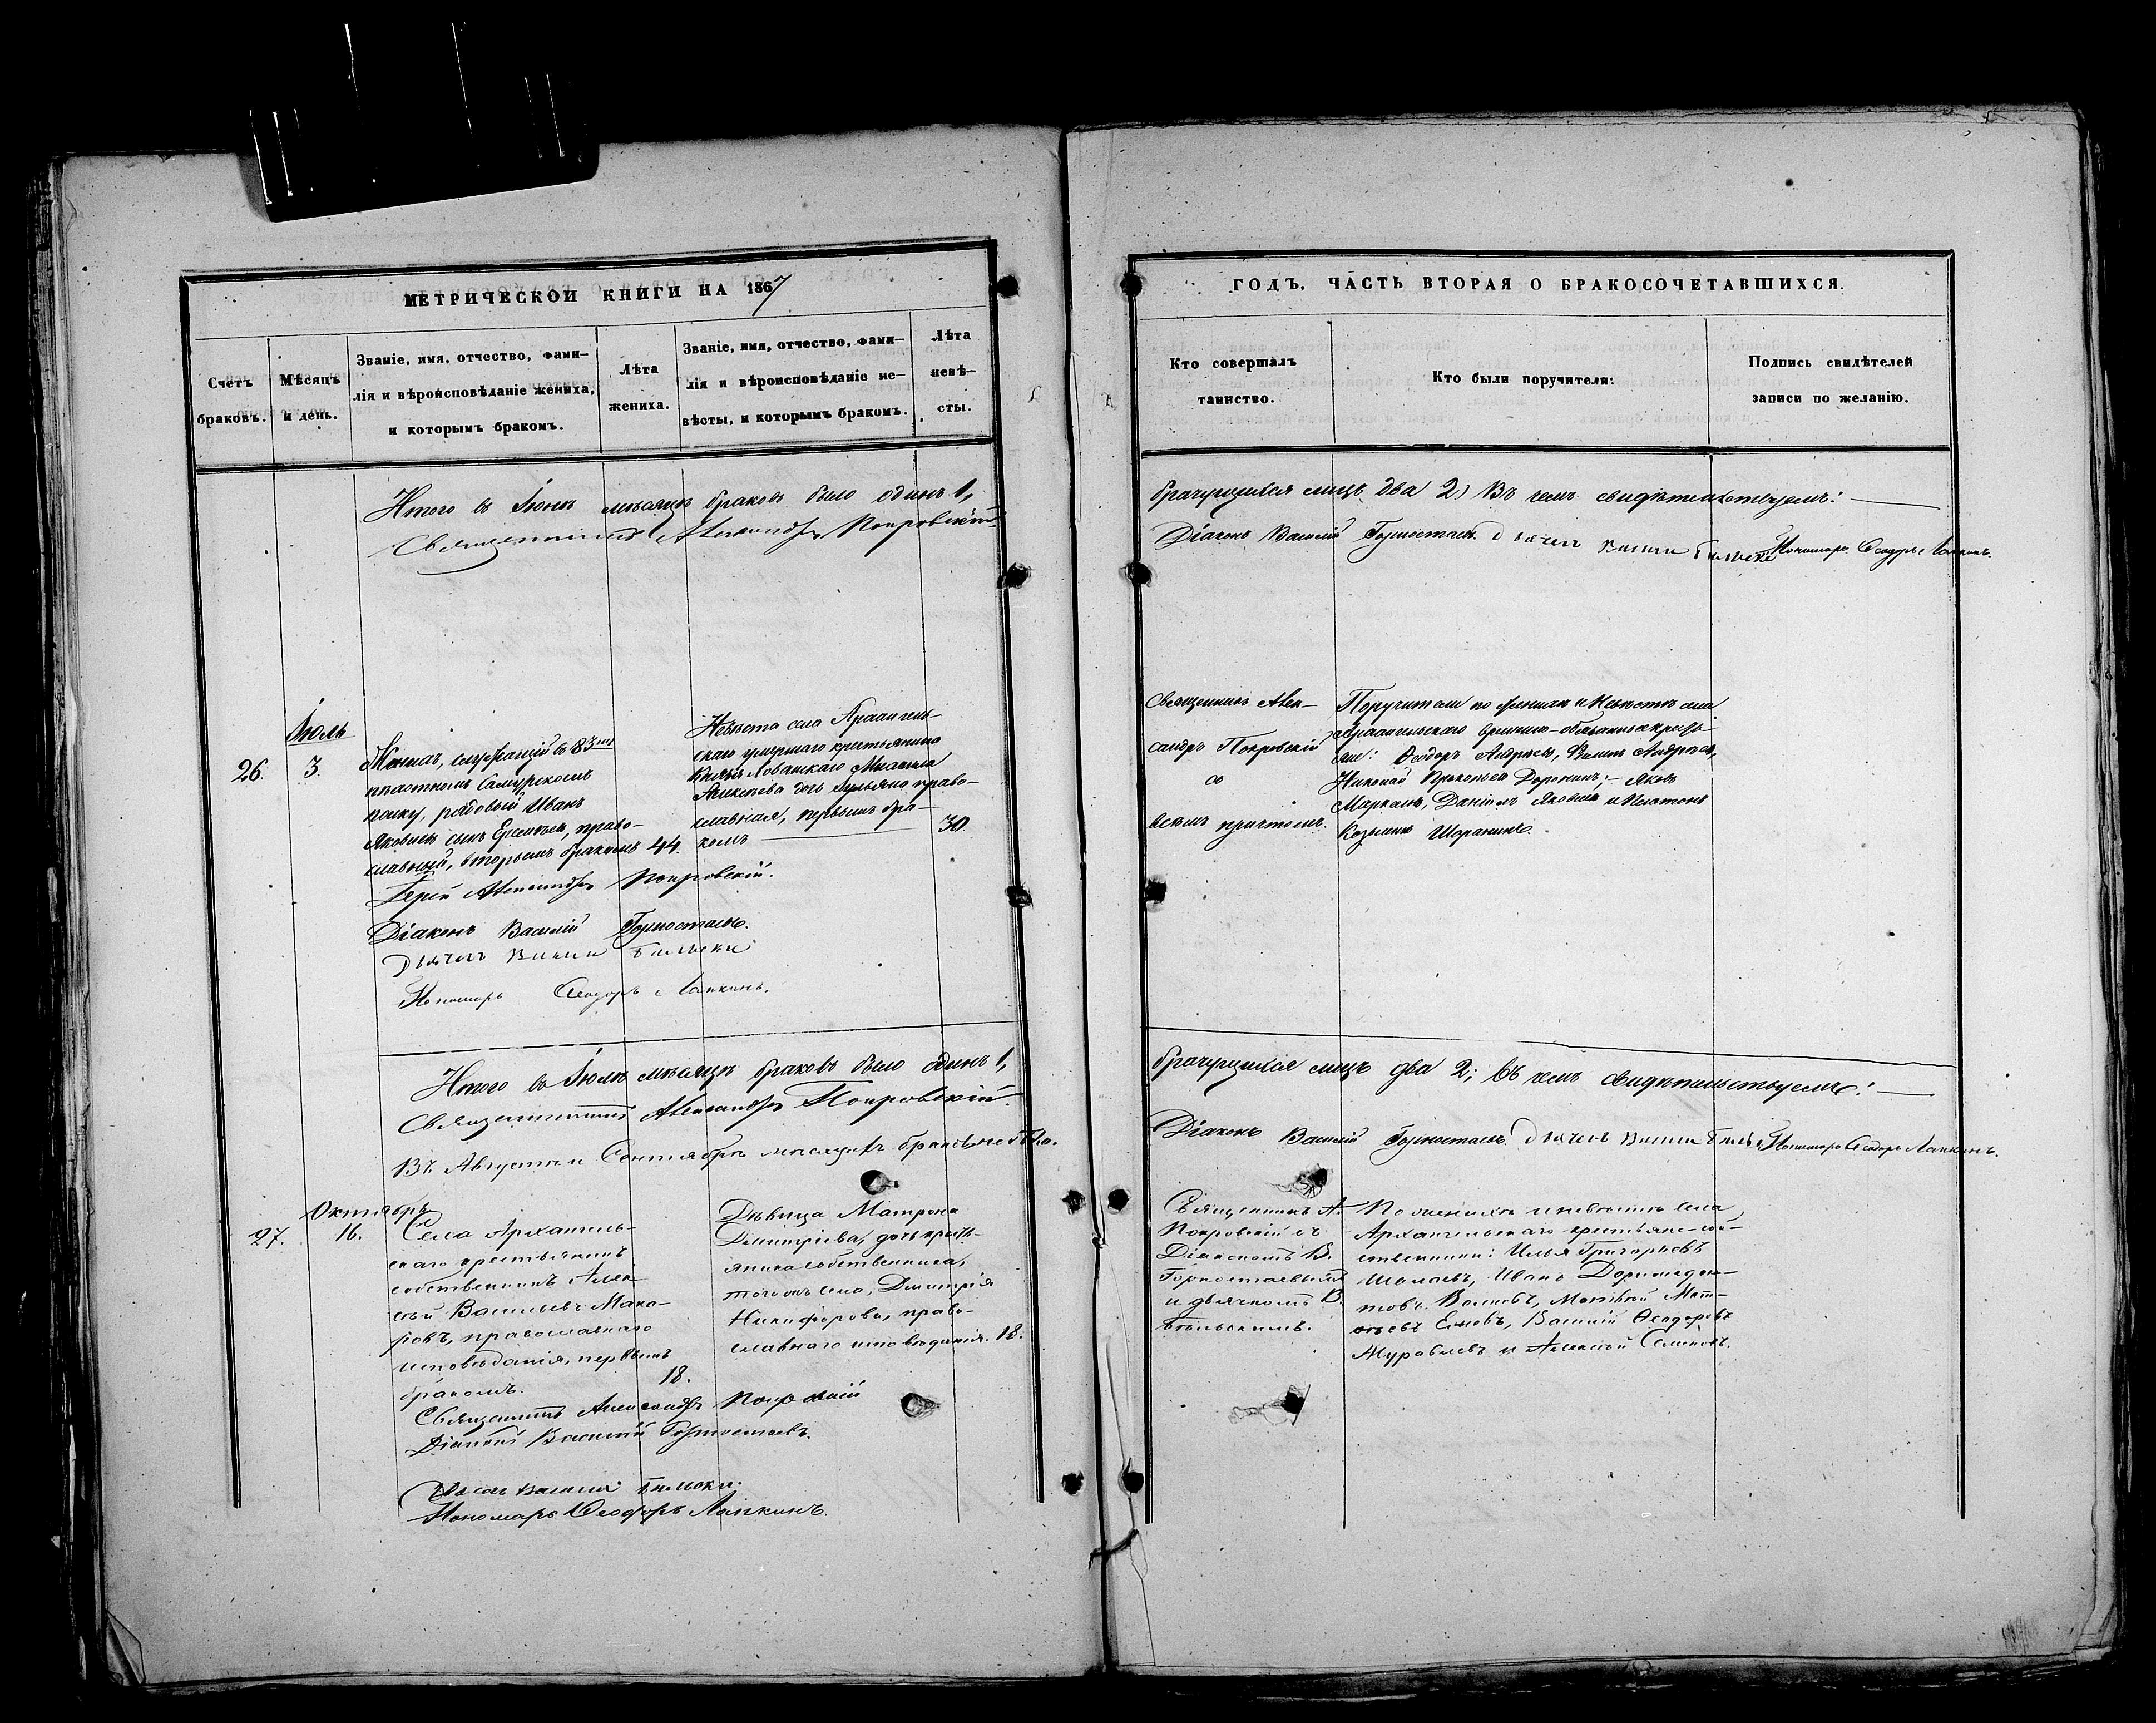 МЕТРИЧЕСКОЙ КНИГИ НА 1867
Счетъ браковъ.
Мѣсяцъ и день.
Званіе, имя, отчество, фами-
лія и вѣроисповѣданіе жениха,
и которымъ бракомъ.
Лѣта
жениха.
Званіе, имя, отчество, фами-
лія и вѣроисповѣданіе не-
вѣсты, и которымъ бракомъ.
Лѣта
невѣ-
сты.
Итого въ Іюнѣ мѣсяцѣ браковъ было одинъ 1,
Священникъ Александръ Покровскій
Іюль
26.
3.
Женихъ, служащій въ 83мъ
пѣхотномъ Самурскомъ
полку, рядовой Иванъ
Яковлевъ сынъ, право-
славный, вторымъ бракомъ
44.
Невѣста села Архангель-
скаго умершаго крестьянина
Князя Михаила
Алексѣева дочь право-
славная, первымъ бра-
комъ
30.
Іерей Александръ Покровскій.
Діаконъ Василій Горностаевъ.
Дьячекъ
Пономарь Ѳеодоръ Лапкинъ.
Итого въ Іюлѣ мѣсяцѣ браковъ было одинъ 1,
Священникъ Александръ Покровскій.
Въ Августѣ и Сентябрѣ мѣсяцахъ браковъ не было.
Октябрь
27.
16.
Села Архангель-
скаго крестьянинъ
собственникъ Алек-
сѣй Васильевъ Мака-
ровъ, православнаго
исповѣданія, первымъ
бракомъ.
18.
Дѣвица Матрона
Дмитріева, дочь кресть-
янина собственника,
того жъ села, Дмитрія
Никифорова, право-
славнаго исповѣданія.
18.
Священникъ Александръ Покровскій
Діаконъ Василій Горностаевъ.
Пономарь Ѳеодоръ Лапкинъ.
ГОДЪ, ЧАСТЬ ВТОРАЯ О БРАКОСОЧЕТАВШИХСЯ.
Кто совершалъ
таинство.
Кто были поручители:
Подпись свидѣтелей
записи по желанію.
брачущихся лицъ два 2) Въ чемъ свидѣтельствуемъ:
Діаконъ Василій Горностаевъ. Дьячекъ Пономарь Ѳеодоръ Лапкинъ.
Священникъ Алек-
сандръ Покровскій
со
всѣмъ причтомъ.
Поручители по женихѣ и невѣстѣ села
Архангельскаго временно-обязанные кресть-
яне: Ѳеодоръ Андреевъ, Филипъ Андреевъ,
Николай Прокопьевъ Доронинъ; Яковъ
Даніилъ Яковлевъ и Платонъ
Козьминъ
брачущихся лицъ два 2; Въ чемъ свидѣтельствуемъ:
Діаконъ Василій Горностаевъ. Дьячекъ Пономарь Ѳеодоръ Лапкинъ.
Священникъ А.
Покровскій съ
Діакономъ В.
Горностаевымъ
и дьячкомъ В.
Бѣльскимъ.
По женихѣ и невѣстѣ села
Архангельскаго крестьяне-соб-
ственники: Илья Григорьевъ
Иванъ Доримедон-
товъ Волковъ, Матвѣй Мат-
вѣевъ Василій Ѳеодоровъ
Муравлевъ и Алексѣй